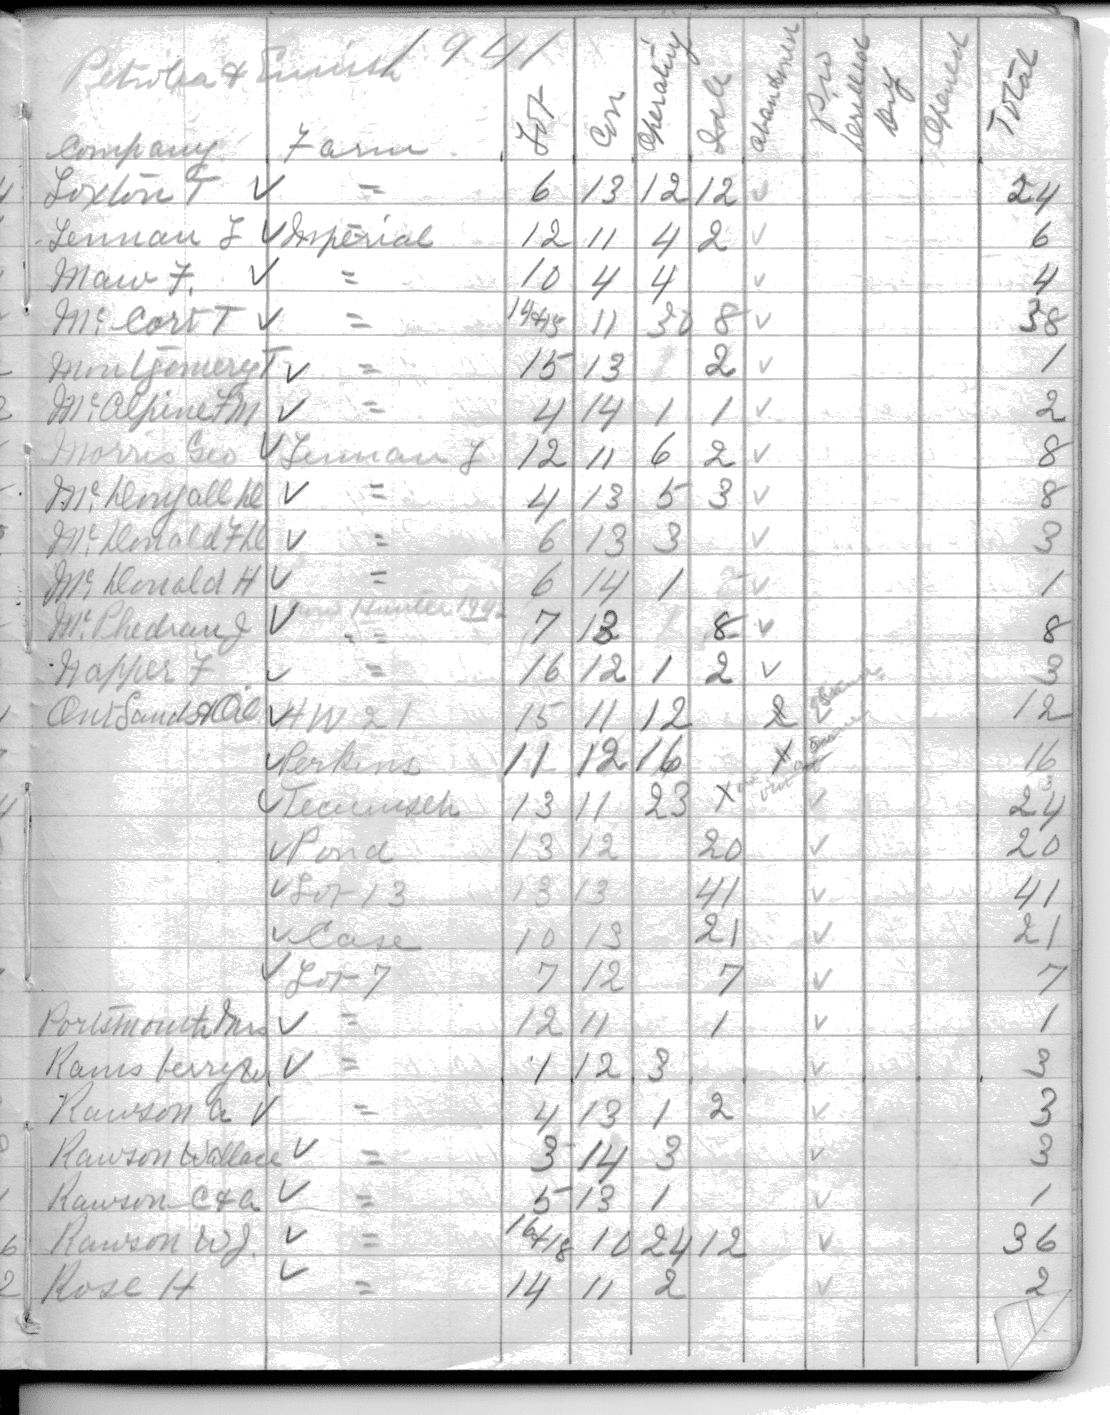 1941
Petrolea & Ennisk
Company Farm Lot Con Operating Idle Abandoned Pro Drilled Dry Opened Total
Loxton T ✓ = 6 13 12 12 ✓ 24
Lennan J ✓ Imperial 12 11 4 2 ✓ 6
Maw F. ✓ = 10 4 4 ✓ 4
Mc Cort T ✓ = 14&15 11 30 8 ✓ 38
Montgomery T ✓ = 15 13 2 ✓ 1
Mc Alpine F M ✓ = 4 14 1 1 ✓ 2
Morris Geo ✓ Lennan J 12 11 6 2 ✓ 8
Mc Dougall D ✓ = 4 13 5 3 ✓ 8
Mc Donald F D ✓ = 6 13 3 ✓ 3
Mc Donald H ✓ = 6 14 1 ✓ 1
Hunter 1942
Mc Phedran J ✓ = 7 13 8 ✓ 8
Napper F ✓ = 16 12 1 2 ✓ 3
Ont Sands & Oil ✓ HW 21 15 11 12 ✓ 12
✓ Perkins 11 12 16 x 16
✓ Tecumseh 13 11 23 x ✓ 24
✓ Pond 13 12 20 ✓ 20
✓ Lot 13 13 13 41 ✓ 41
✓ Case 10 13 21 ✓ 21
✓ Lot 7 7 12 7 ✓ 7
Portsmouth Mrs ✓ = 12 11 1 ✓ 1
Ramsberry ✓ = 1 12 3 ✓ 3
Rawson A ✓ = 4 13 1 2 ✓ 3
Rawson Wallace ✓ = 3 14 3 ✓ 3
Rawson C & A ✓ = 5 13 1 ✓ 1
Rawson W J. ✓ = 16&18 10 24 12 ✓ 36
Rose H ✓ = 14 11 2 ✓ 2